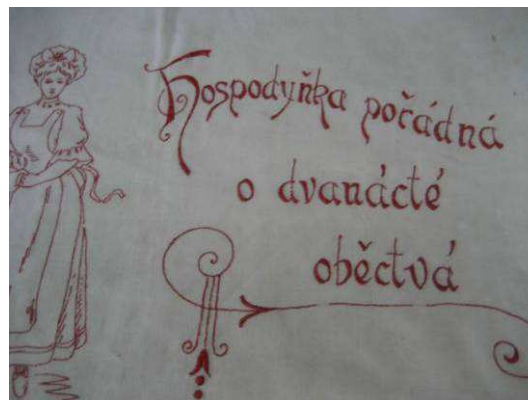 Hospodyňka pořádná
o dvanácté
oběctvá